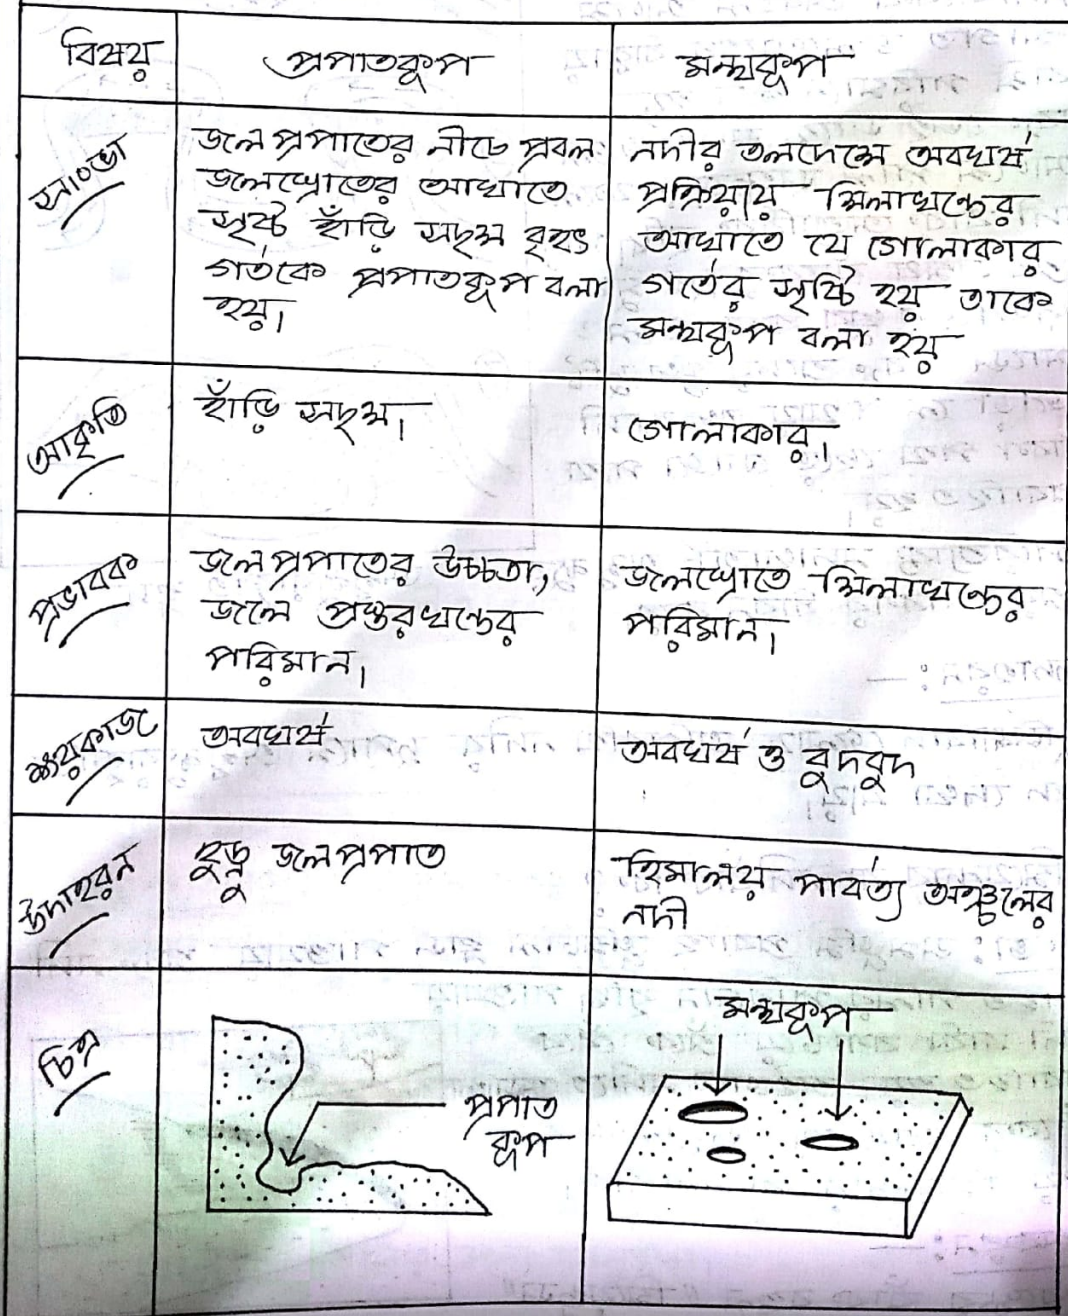 বিষয়
প্রপাতকূপ
মন্থকূপ
সংজ্ঞা
জলপ্রপাতের নীচে প্রবল
জলস্রোতের আঘাতে
সৃষ্ট হাঁড়ি সদৃশ বৃহৎ
গর্তকে প্রপাতকূপ বলা
হয়।
নদীর তলদেশে অবঘর্ষ
প্রক্রিয়ায় শিলাখন্ডের
আঘাতে যে গোলাকার
গর্তের সৃষ্টি হয় তাকে
মন্থকূপ বলা হয়
আকৃতি
হাঁড়ি সদৃশ।
গোলাকার।
প্রভাবক
জলপ্রপাতের উচ্চতা,
জলে প্রস্তরখন্ডের
পরিমান।
জলস্রোতে শিলাখন্ডের
পরিমান।
ক্ষয়কাজ
অবঘর্ষ
অবঘর্ষ ও বুদবুদ
উদাহরন
হুড্রু জলপ্রপাত
হিমালয় পার্বত্য অঞ্চলের
নদী
চিত্র
প্রপাত
কূপ
মন্থকূপ